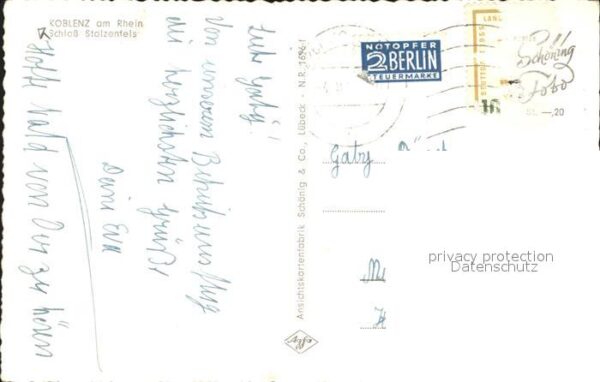 KOBLENZ am Rhein
Schloß Stolzenfels
Liebe Gaby!
Von unserem Betriebsausflug
die herzlichsten Grüße
Deine Eva
Hoffe bald von Dir zu hören
Ansichtskartenfabrik Schöning & Co., Lübeck - N.R.
NOTOPFER
2 BERLIN
STEUERMARKE
Schöning
Foto
St. —,20
Gaby
Agfa
privacy protection
Datenschutz